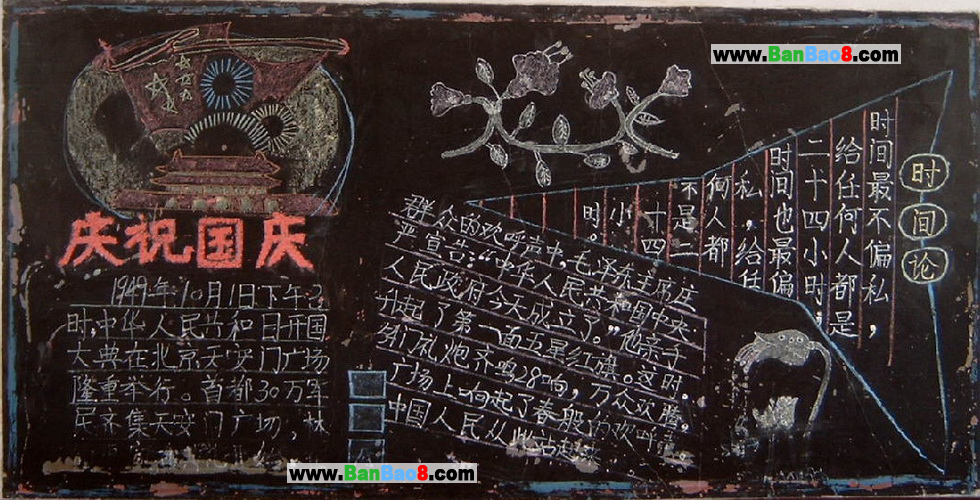 庆祝国庆
1949年10月1日下午3
时,中华人民共和日开国
大典在北京天安门广场
隆重举行。首都30万军
民齐集天安门广场,林
群众的欢呼声中,毛泽东主席庄
严宣告:“中华人民共和国中央
人民政府今天成立了。”他亲手
升起了第一面五星红旗。这时,
门礼炮齐鸣28响,万众欢腾。
广场上响起了春般的欢呼
中国人民从此站起
时间论
时间最不偏私,
给任何人都是
二十四小时
时间也最偏
私,给任
何人都
不是二
十四
小
时。
www.BanBao8.com
www.BanBao8.com